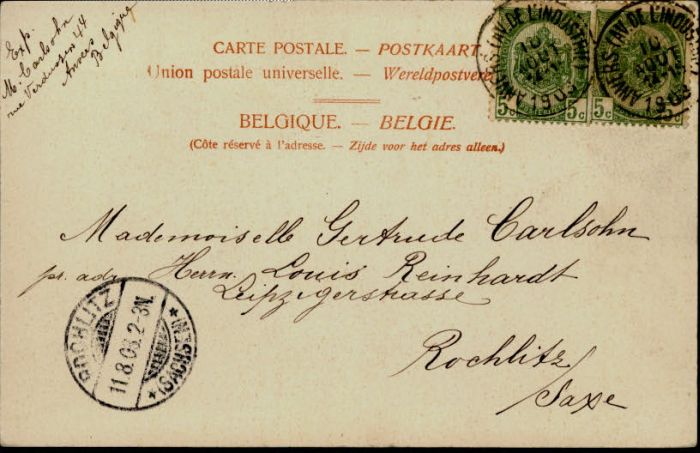 Exp.
M. Carlsohn
rue Verdussen 44
Anvers
Belgique
CARTE POSTALE. — POSTKAART
Union postale universelle. — Wereldpostvere
BELGIQUE. — BELGIE.
(Côte réservé à l'adresse. — Zijde voor het adres alleen.)
ANVERS (AV. DE L'INDUSTRIE)
10
AOUT
1903
5c 5c
ANVERS (AV. DE L'INDUSTRIE)
10
AOUT
1903
5c 5c
Mademoiselle Gertrude Carlsohn
pr. adr. Herrn. Louis Reinhardt
Leipzigerstrasse
Rochlitz
Saxe
ROCHLITZ
11.8.03.2-3N.
* (SACHSEN) *